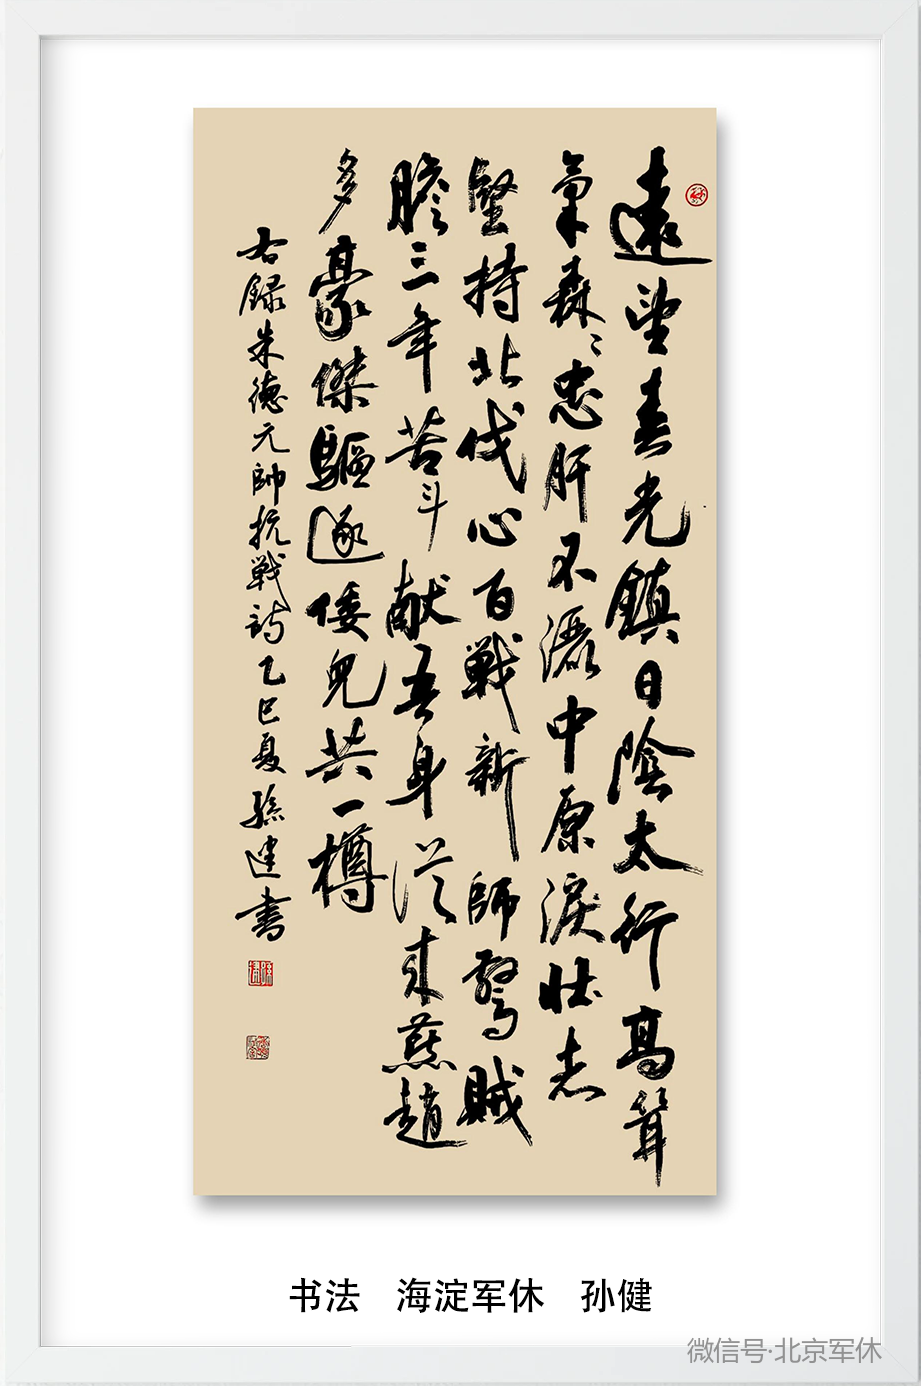 遠望春光鎮日陰太行高聳
氣森〻忠肝不灑中原淚壯志
堅持北伐心百戦新師驚賊
膽三年苦斗献吾身從来燕趙
多豪傑驅逐倭兒共一樽
右録朱德元帥抗戦詩乙巳夏孫建書
书法 海淀军休 孙健
微信号·北京军休